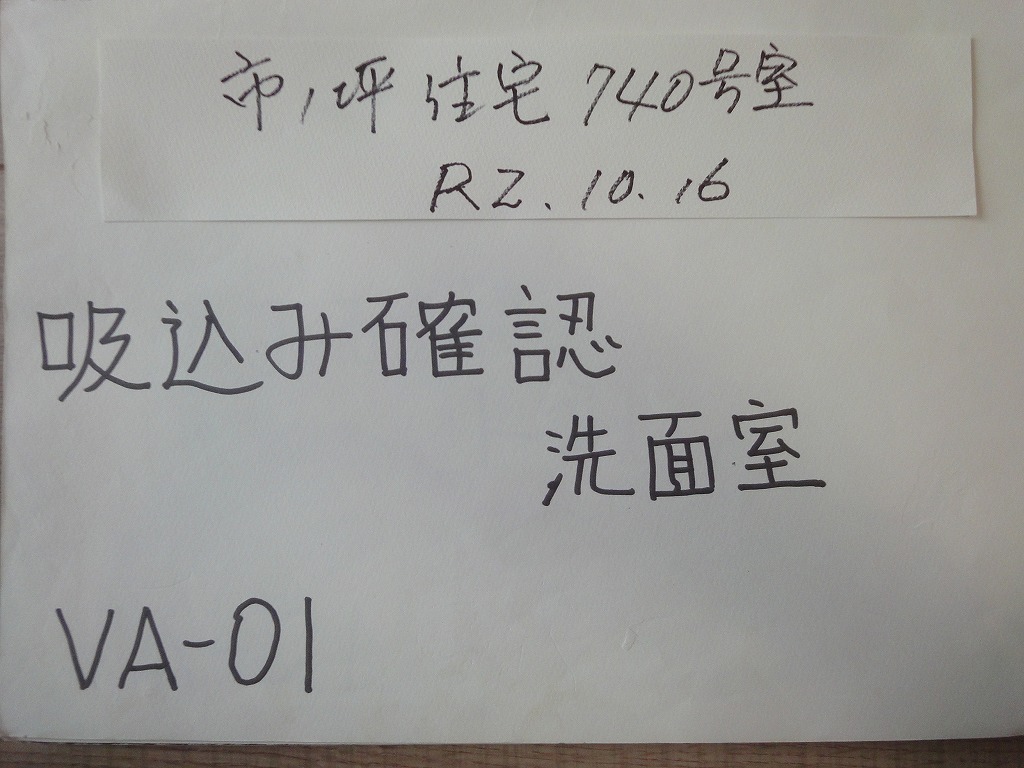 市ノ坪住宅 740号室
R2.10.16
吸込み確認
洗面室
VA-01